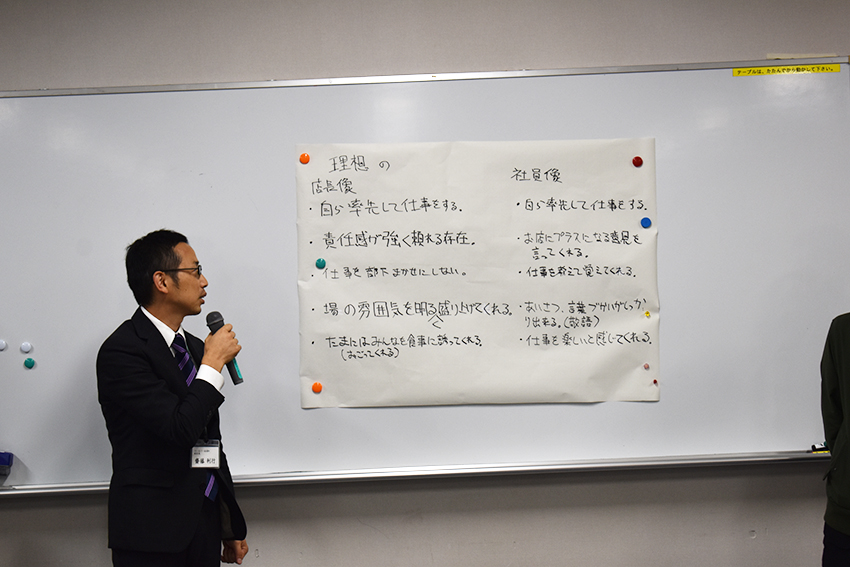 テーブルは、かたんでから動かして下さい。
理想の
店長像
・自ら率先して仕事をする。
・責任感が強く頼れる存在。
・仕事を部下まかせにしない。
・場の雰囲気を明るく盛り上げてくれる。
・たまにはみんなを食事に誘ってくれる。
(おごってくれる)
社員像
・自ら率先して仕事をする。
・お店にプラスになる意見を
言ってくれる。
・仕事を教えて覚えてくれる。
・あいさつ、言葉づかいがしっか
り出来る。(敬語)
・仕事を楽しいと感じてくれる。